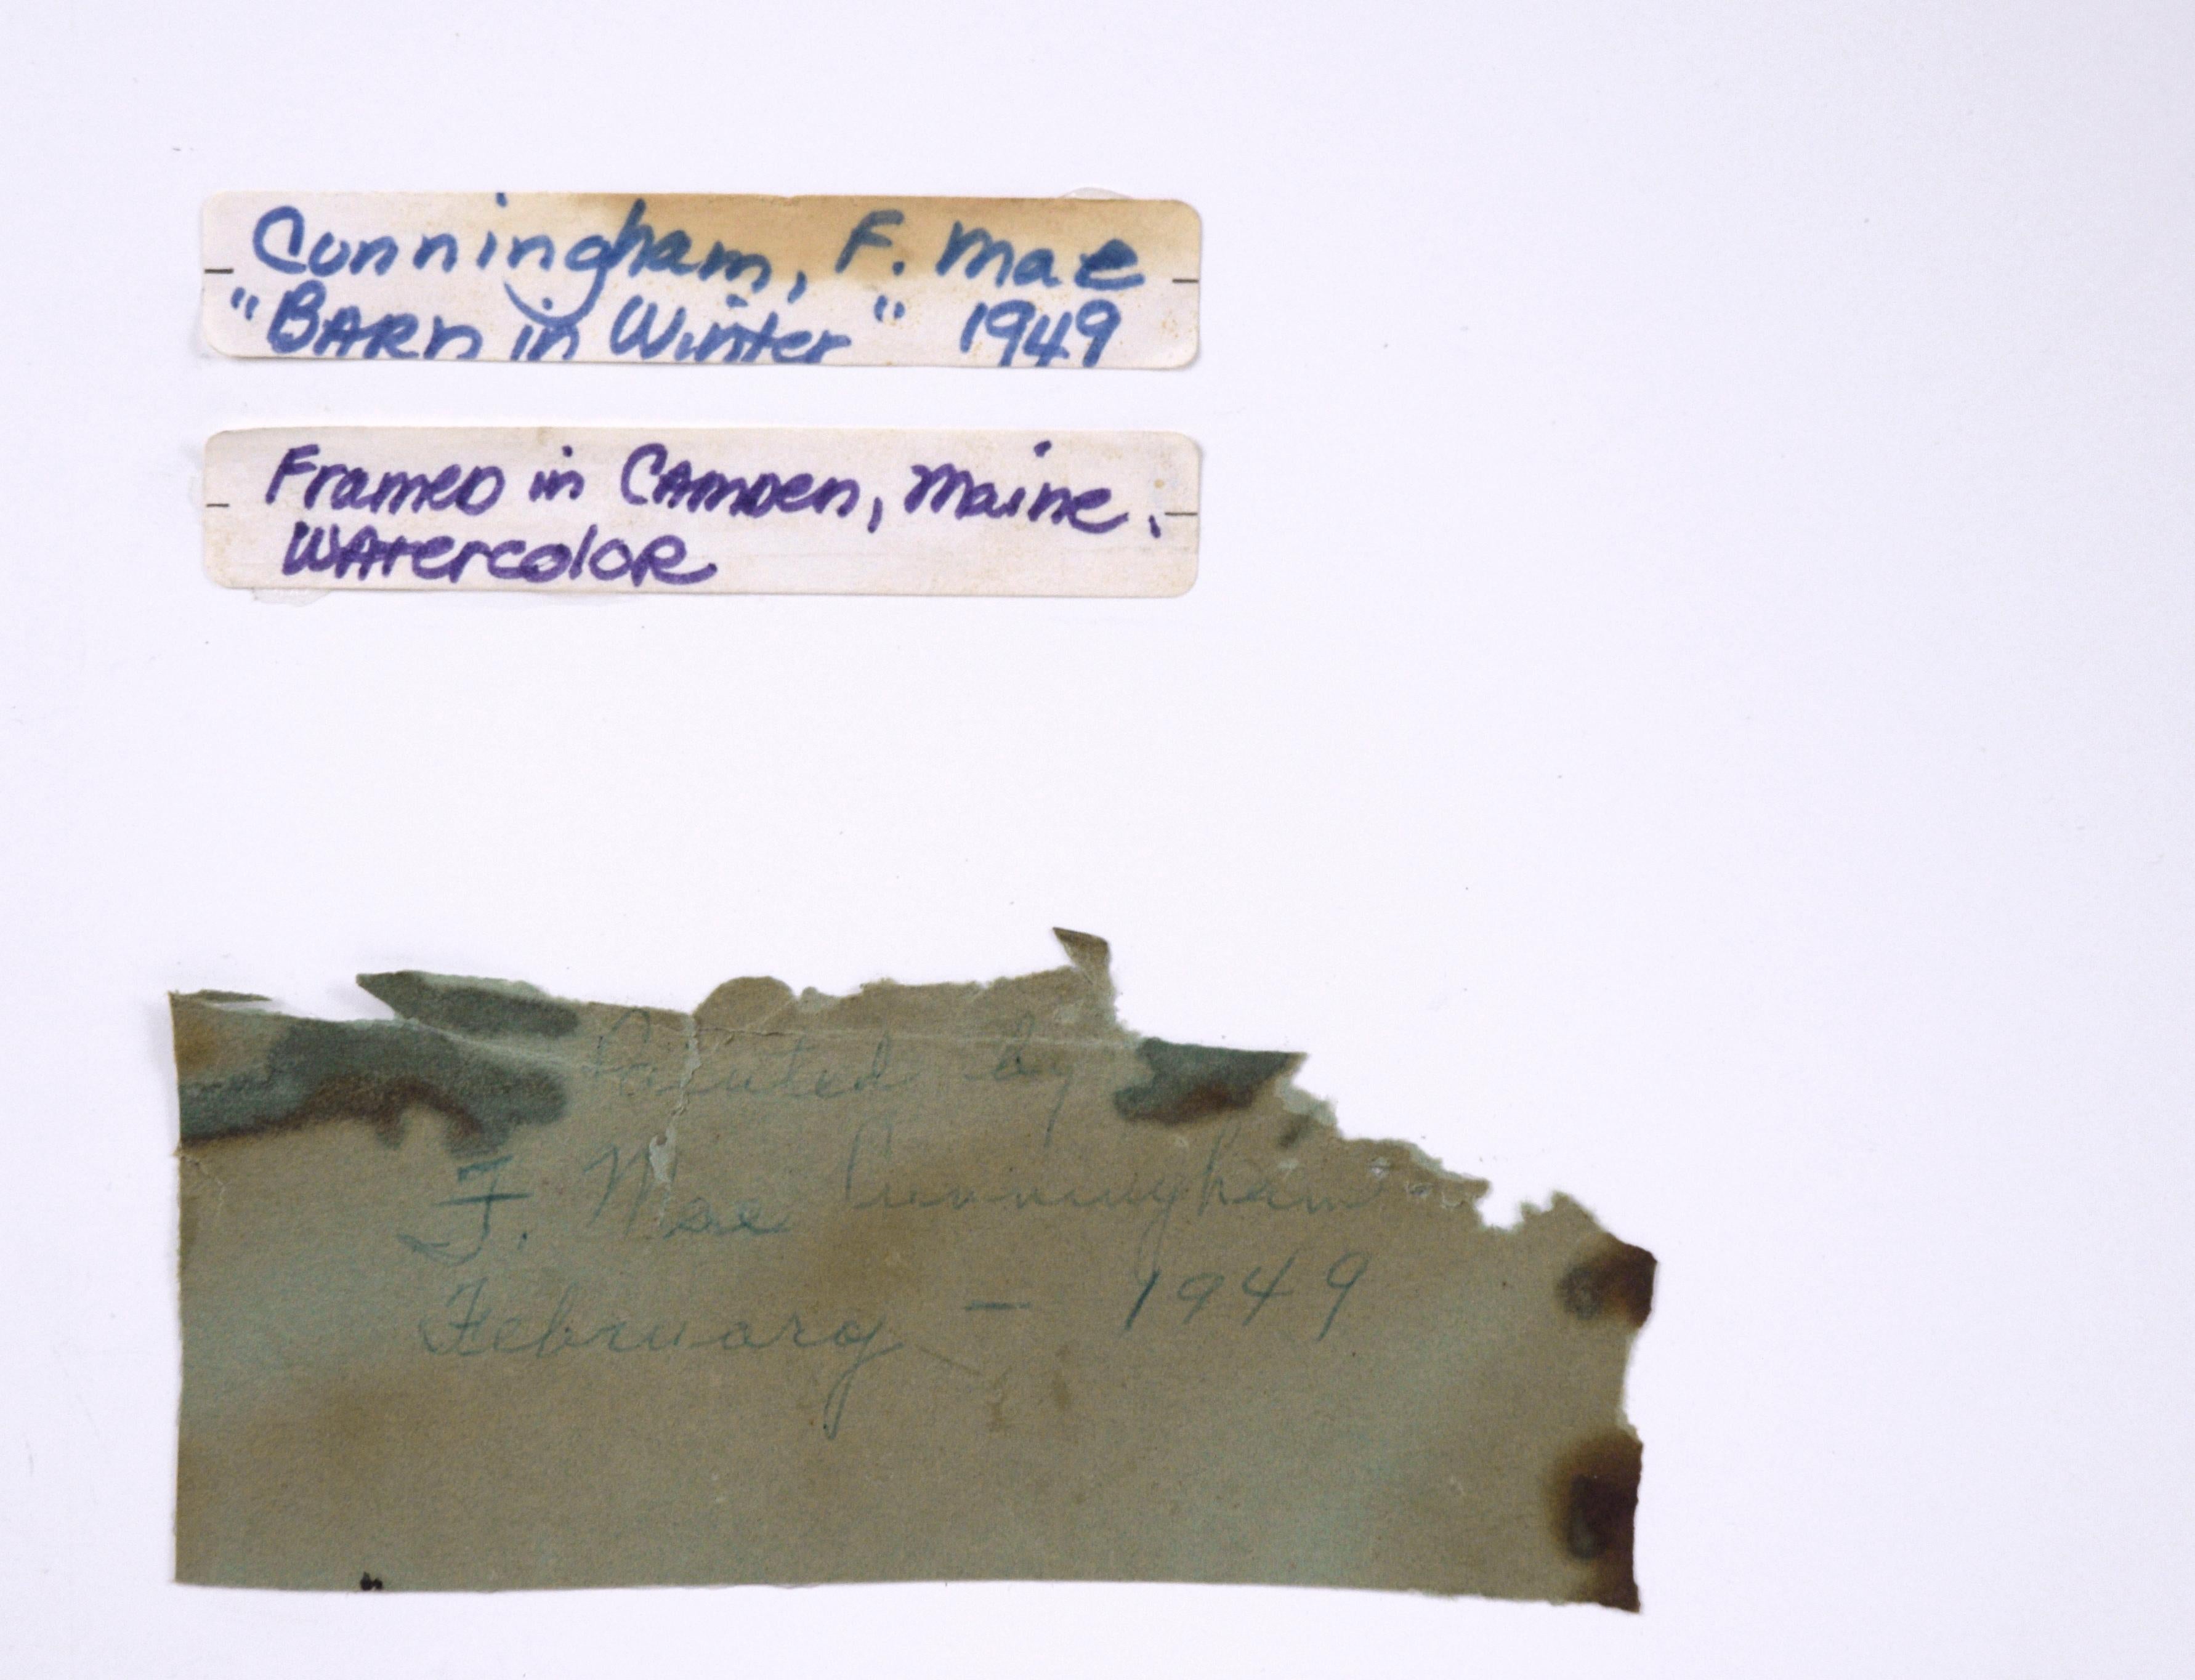 Cunningham, F. Mae
"BARN in Winter" 1949
Framed in Camden, Maine.
Watercolor
Painted by
F. Mae Cunningham
February - 1949